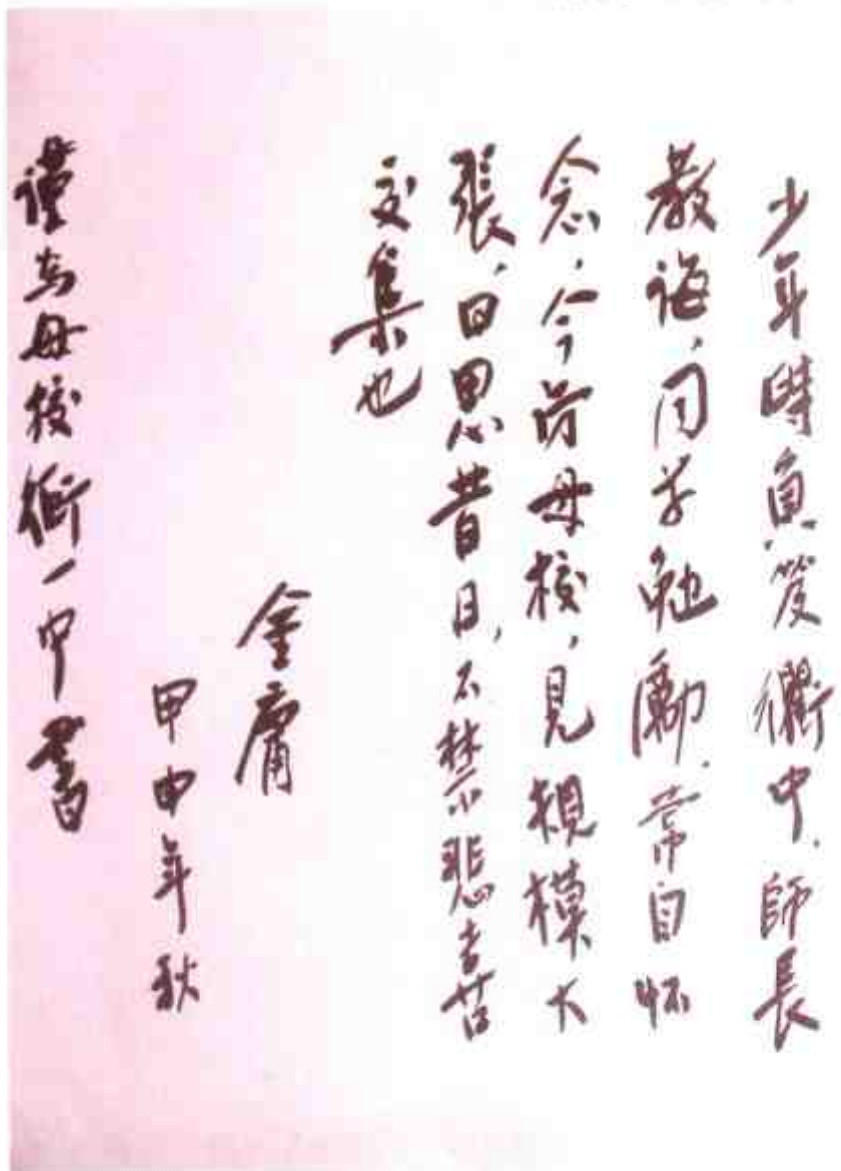 少年時負笈衢中，師長
教誨，同学勉勵，常自怀
念，今訪母校，見規模大
張，回思昔日，不禁悲喜
交集也
金庸
甲申年秋
謹为母校衢一中書